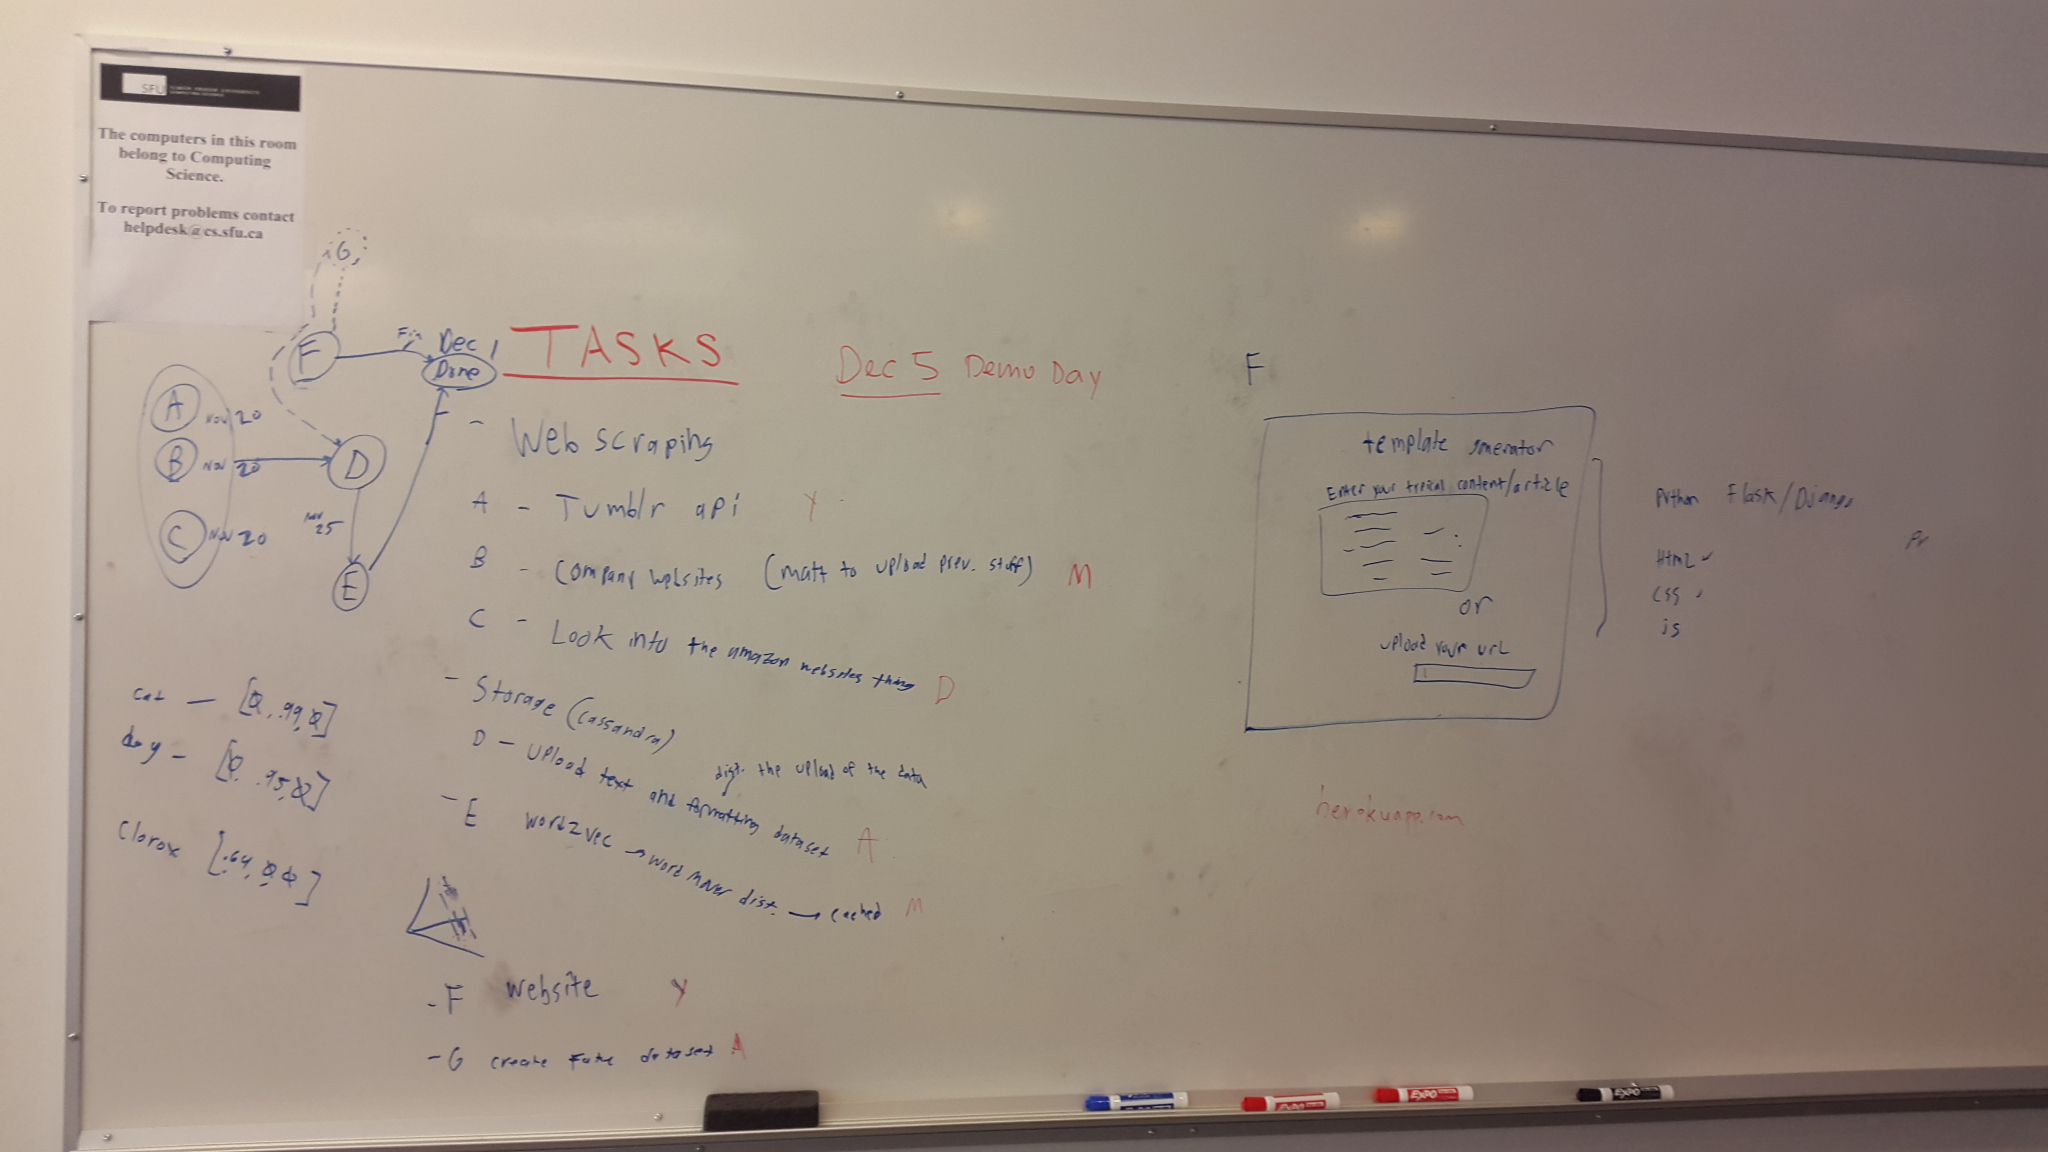 SFU SIMON FRASER UNIVERSITY
COMPUTING SCIENCE
The computers in this room
belong to Computing
Science.
To report problems contact
helpdesk@cs.sfu.ca
G
F
Fin
Dec 1
Done
A Nov 20
B Nov 20
C Nov 20
D
Nov 25
E
TASKS
Dec 5 Demo Day
- Web scraping
A - Tumblr api Y
B - Company websites (matt to upload prev. stuff) M
C - Look into the amazon websites thing D
- Storage (cassandra)
D - Upload text and formatting dataset A
dist. the upload of the data
- E word2vec → word mover dist. → cached M
- F website Y
- G create Fake dataset A
cat - [0, .99, 0]
dog - [0, .95, 0]
Clorox [.64, 0, 0]
F
template generator
Enter your typical content/article
or
upload your url
Python Flask/Django
Html ✓
css
js
Pr
herokuapp.com
EXPO
EXPO
EXPO